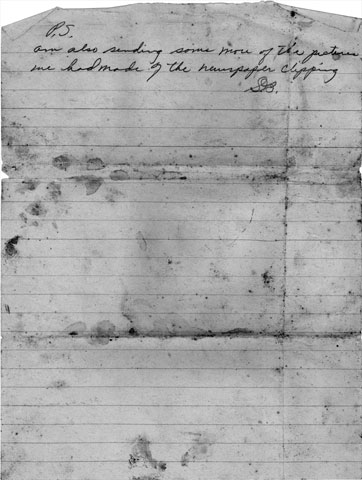 P.S.
am also sending some more of the pictures
we had made of the newspaper clipping
S.B.